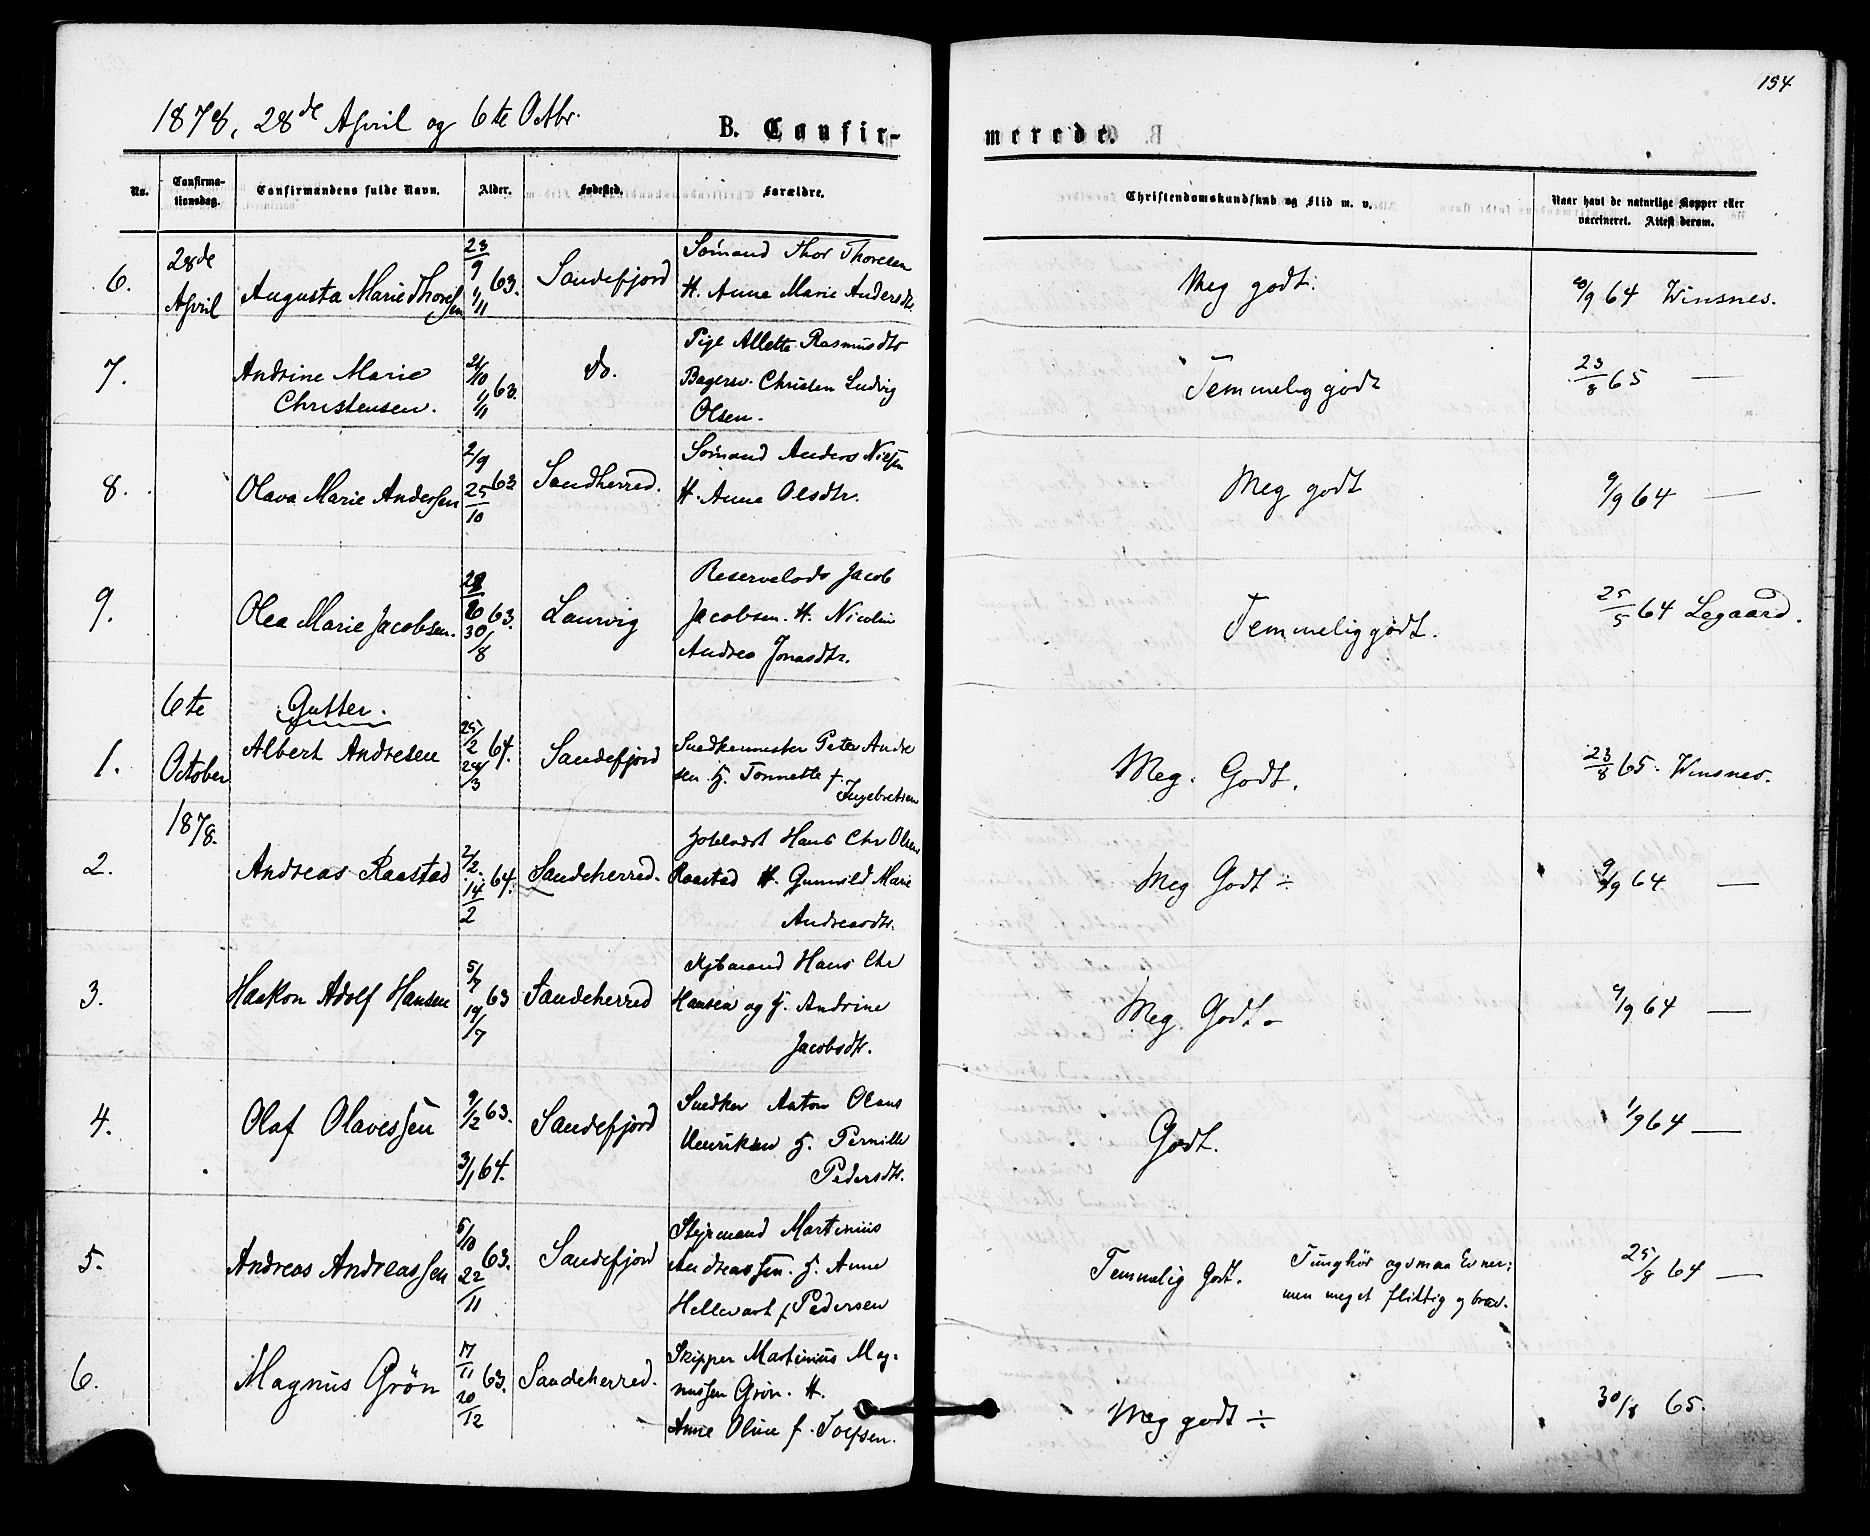 154
1878, 28de April og 6te Octbr.
B. Confir-
merede.
No.
Confirma-
tionsdag.
Confirmandens fulde Navn.
Alder.
Fødested.
Forældre.
Christendomskundskab og Flid m. v.
Naar havt de naturlige Kopper eller
vaccineret. Attest derom.
28de
April
6. Augusta Marie Thoresen 23/9 63. 1/11 Sandefjord
Sømand Thor Thoresen
H. Anne Marie Andersdtr.
Meg godt. 20/9 64 Winsnes.
7. Andrine Marie
Christensen. 21/10 63. 1/11 do.
Pige Allette Rasmusdtr
Bagersv. Christen Ludvig
Olsen.
Temmelig godt 23/8 65 —
8. Olava Marie Anderssen 2/9 63 25/10 Sandherred.
Sømand Anders Nilssen
H. Anne Olsdtr.
Meg godt 9/9 64 —
9. Olea Marie Jacobsen. 63. 30/8 Laurvig
Reservelods Jacob
Jacobsen. H. Nicolin
Andrea Jonasdtr.
Temmelig godt. 25/5 64 Legaard.
6te
October
1878.
Gutter.
1. Albert Andresen 25/2 64. 24/3 Sandefjord
Snedkermester Peter Andre
sen H. Tonnette f.
Ingebretsen
Meg. Godt. 23/8 65. Winsnes.
2. Andreas Raastad 2/2. 64. 14/2 Sandeherred.
Hans Chr Olsen
Raastad H. Gunnild Marie
Andreasdtr.
Meg Godt ÷ 9/9 64 —
3. Haakon Adolf Hansen 5/7 63 19/7 Sandeherred
Hans Chr
Hansen og H. Andrine
Jacobsdtr.
Meg. Godt 9/9 64 —
4. Olaf Olavessen 9/12 63. 3/1 64. Sandefjord
Snedker Anton Olaus
Henriksen H. Pernille
Pedersdtr.
Godt. 1/9 64 —
5. Andreas Andreassen 5/10 63. 22/11 Sandefjord
Styrmand Martinius
Andreassen. H. Anne
Hellevart f Pedersen
Temmelig Godt. Tunghør og smaa Evner;
men meget flittig og brav.
25/8 64 —
6. Magnus Grøn 17/11 63. 20/12 Sandeherred.
Skipper Martinius Mag-
nussen Grøn. H.
Anne Oline f. Toefsen.
Meg godt ÷ 30/8 65.